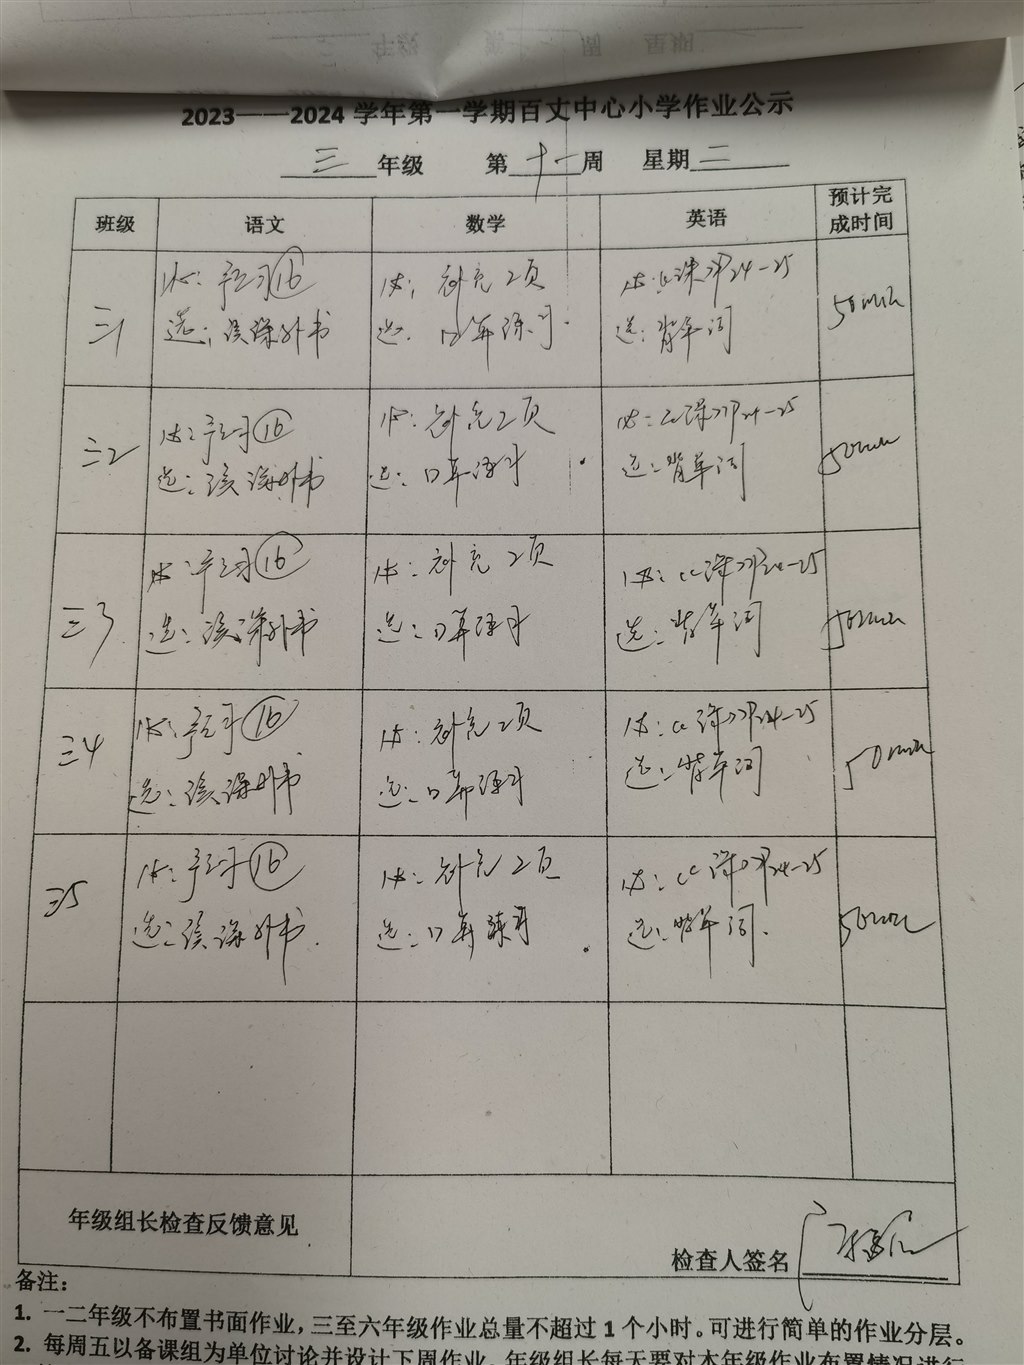 2023——2024 学年第一学期百丈中心小学作业公示
三 年级 第 十一 周 星期 二
班级 语文 数学 英语 预计完成时间
三1
必: 预习⑯
选: 读课外书
必: 补充2页
选: 口算练习
必: 课时P24-25
选: 背单词
50min
三2
必: 预习⑯
选: 读课外书
必: 补充2页
选: 口算练习
必: 课时P24-25
选: 背单词
50min
三3
必: 预习⑯
选: 读课外书
必: 补充2页
选: 口算练习
必: 课时P24-25
选: 背单词
50min
三4
必: 预习⑯
选: 读课外书
必: 补充2页
选: 口算练习
必: 课时P24-25
选: 背单词
50min
三5
必: 预习⑯
选: 读课外书
必: 补充2页
选: 口算练习
必: 课时P24-25
选: 背单词
50min
年级组长检查反馈意见
检查人签名
备注:
1. 一二年级不布置书面作业，三至六年级作业总量不超过 1 个小时。可进行简单的作业分层。
2. 每周五以备课组为单位讨论并设计下周作业，年级组长每天要对本年级作业布置情况进行